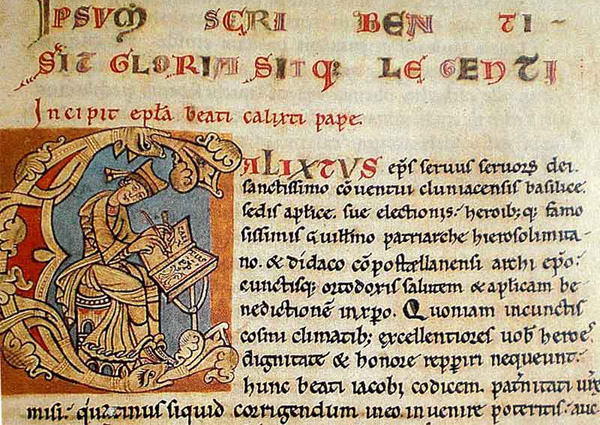 IPSVM SCRIBENTI-
SIT GLORIA SITQ: LEGENTI
Incipit epła beati calixti pape.
CALIXTVS eps seruus seruorƺ dei.
sanctissimo cōuentui cluniacensis basilice.
sedis aplice. sue electionis. heroibꝫ qꝫ famo
sissimis Guillmo patriarche hierosolimita-
no. & didaco cōpostellanensi archi epō.
cunctisqꝫ ortodoxis salutem & aplicam be-
nedictionē inxpo. Quoniam incunctis
cosmi climatibꝫ excellentiores uob heroes
dignitate & honore repperiri nequeunt.
hunc beati iacobi codicem. patnitati urē
misi. quatinus siquid corrigendum ineo inuenire poteritis. auc